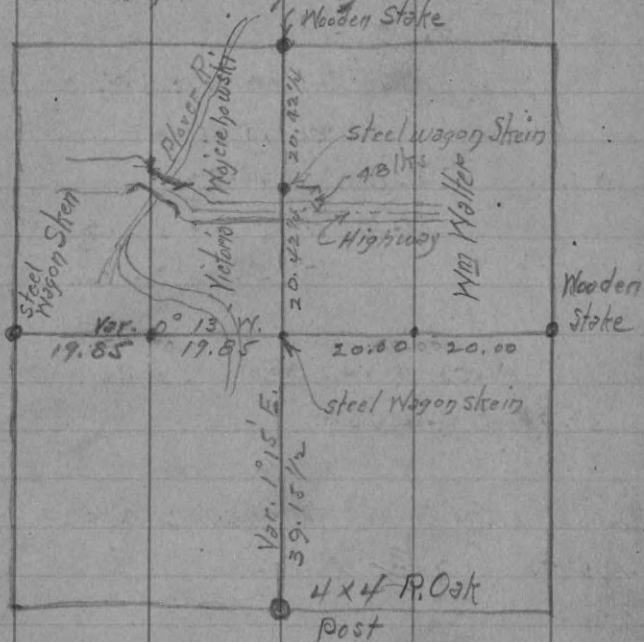 Wooden Stake
Plover R.
Wojciehowski
20.42¼
steel wagon Skein
48 lks
Highway
Wm Walter
Victoria
20.42¼
steel
Wagon Skein
Wooden
Stake
Var. 0° 13' W.
19.85 19.85 20.00 20.00
steel Wagon skein
Var. 1° 15' E.
39.15 1/2
4 x 4 R. Oak
Post